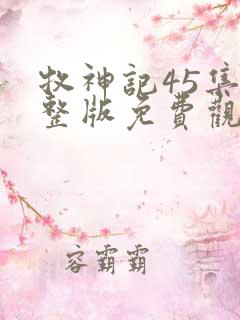 牧神記45集
整版免費觀
容霸霸